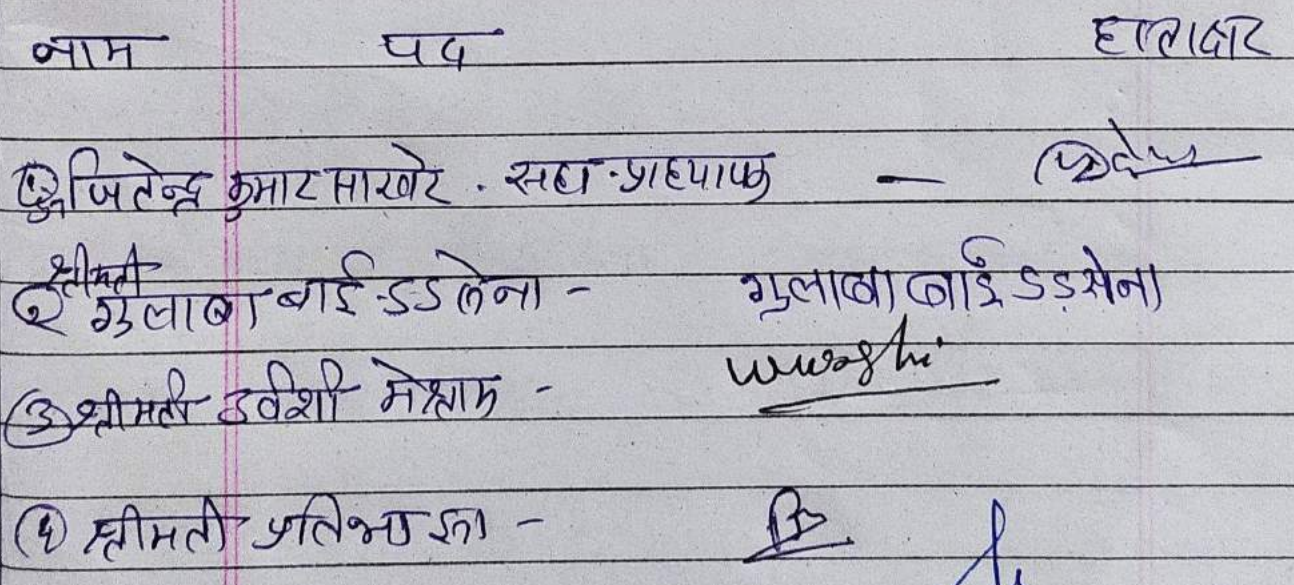 नाम पद हस्ताक्षर
① जितेन्द्र कुमार साखरे . सहा. प्राध्यापक —
श्रीमती
२ गुलाबा बाई डडसेना - गुलाबा बाई डडसेना
③ श्रीमती उर्वशी मेश्राम - urvashi
④ श्रीमती प्रतिभा झा -